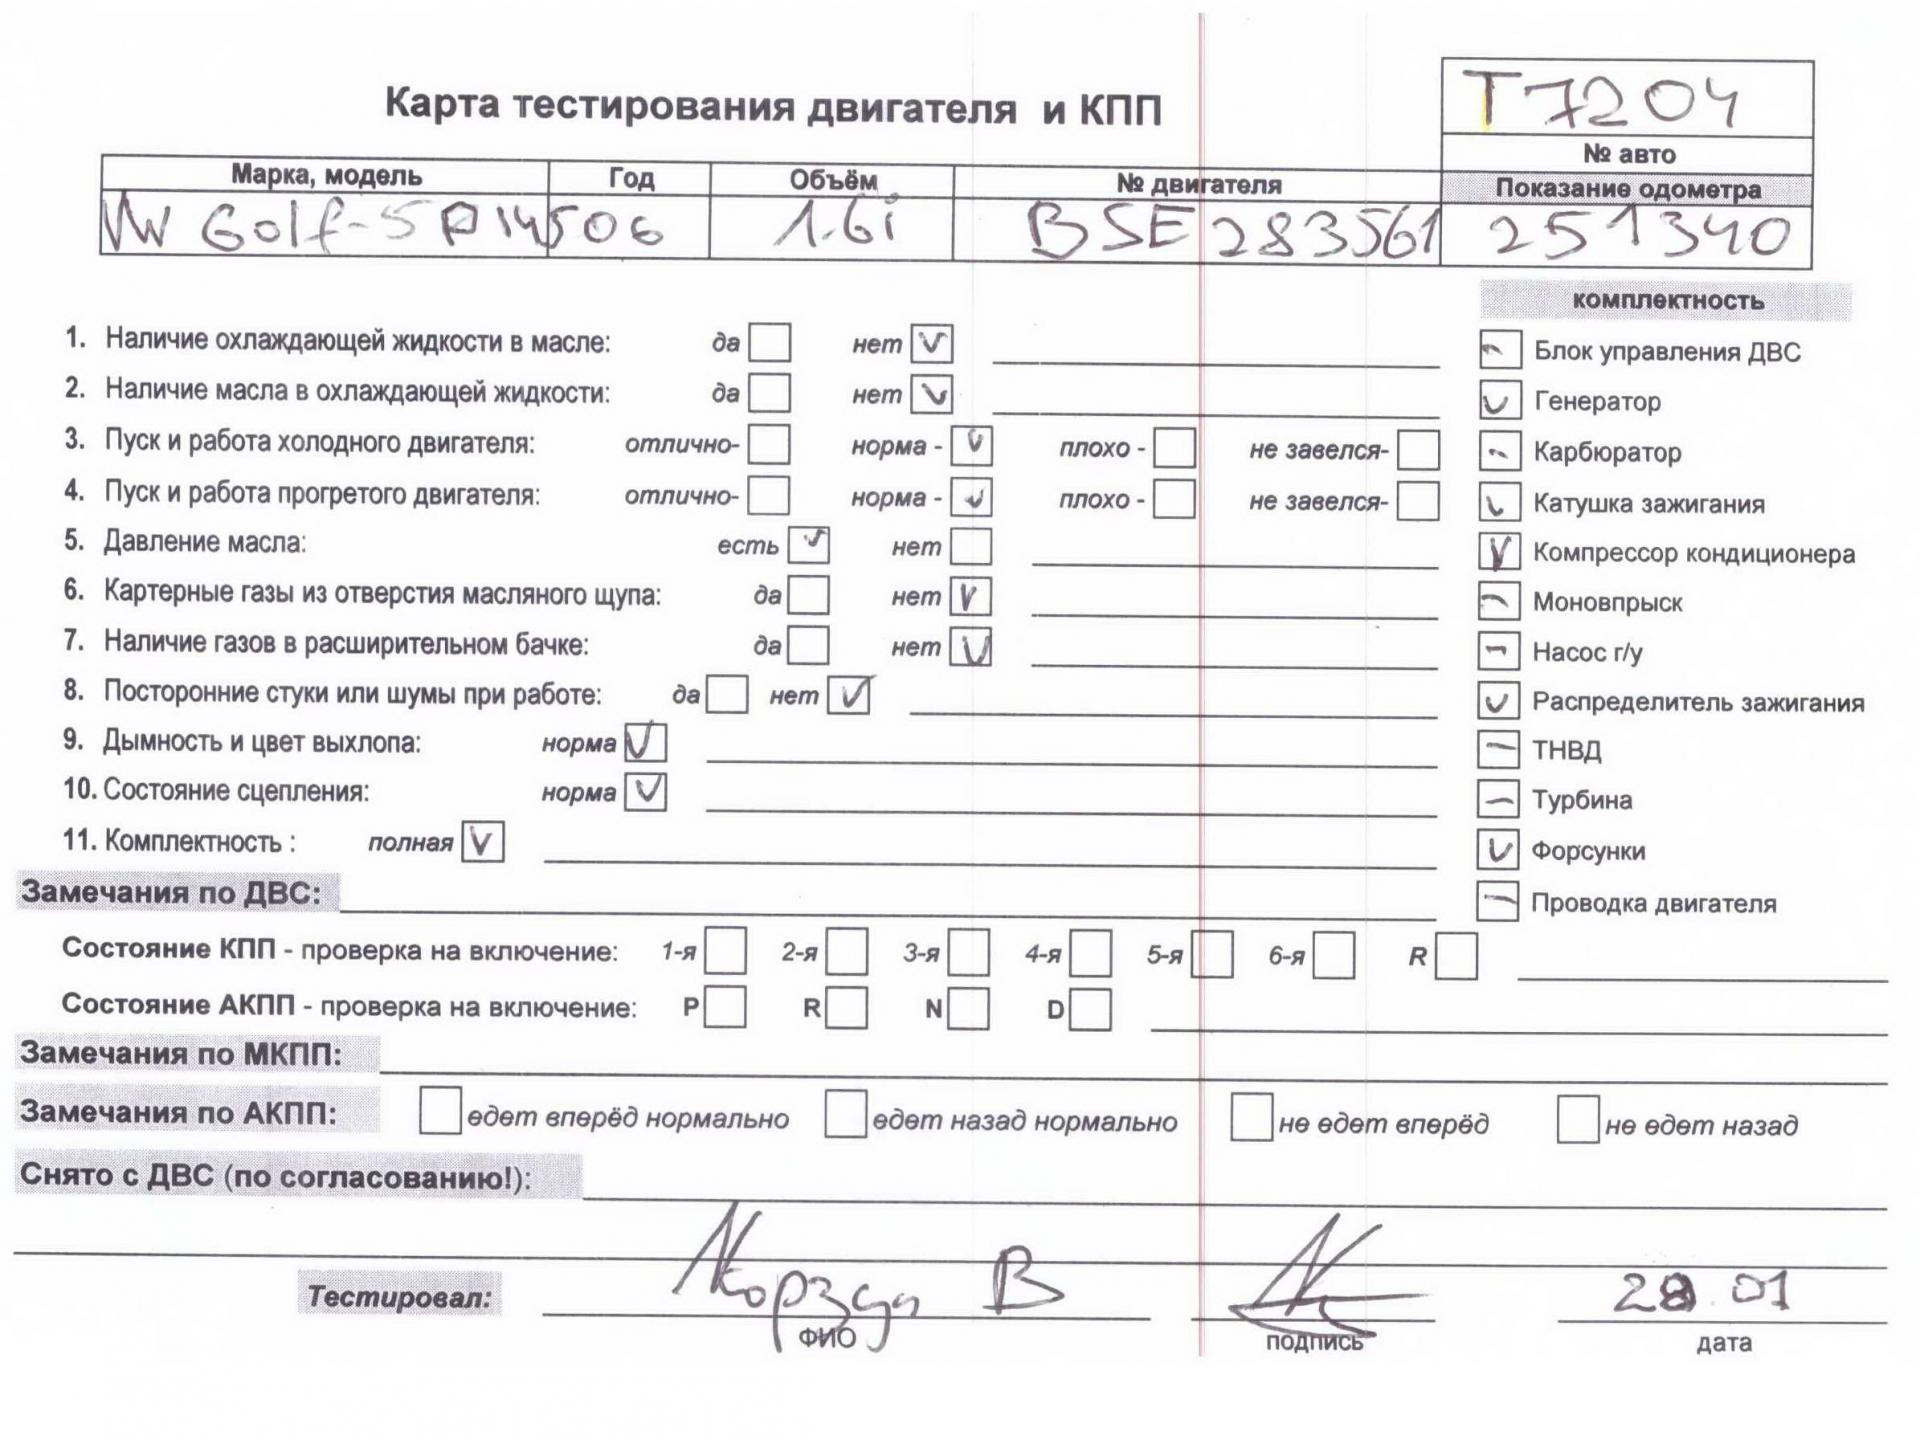 Т 7204
Карта тестирования двигателя и КПП
№ авто
Марка, модель Год Объём № двигателя Показание одометра
VW Golf-5 06 1.6i BSE 283561 251340
комплектность
1. Наличие охлаждающей жидкости в масле: да нет V
Блок управления ДВС
2. Наличие масла в охлаждающей жидкости: да нет V
V Генератор
3. Пуск и работа холодного двигателя: отлично- норма - V плохо - не завелся-
- Карбюратор
4. Пуск и работа прогретого двигателя: отлично- норма - V плохо - не завелся-
V Катушка зажигания
5. Давление масла: есть V нет
V Компрессор кондиционера
6. Картерные газы из отверстия масляного щупа: да нет V
- Моновпрыск
7. Наличие газов в расширительном бачке: да нет V
- Насос г/у
8. Посторонние стуки или шумы при работе: да нет V
V Распределитель зажигания
9. Дымность и цвет выхлопа: норма V
- ТНВД
10. Состояние сцепления: норма V
- Турбина
11. Комплектность : полная V
V Форсунки
Замечания по ДВС:
- Проводка двигателя
Состояние КПП - проверка на включение: 1-я 2-я 3-я 4-я 5-я 6-я R
Состояние АКПП - проверка на включение: P R N D
Замечания по МКПП:
Замечания по АКПП: едет вперёд нормально едет назад нормально не едет вперёд не едет назад
Снято с ДВС (по согласованию!):
Тестировал: В 28.01
ФИО подпись дата